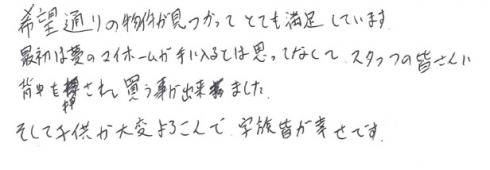 希望通りの物件が見つかってとても満足しています
最初は夢のマイホームが手に入るとは思ってなくて、スタッフの皆さんに
背中を押され買う事が出来ました
そして子供が大変よろこんで、家族皆が幸せです。